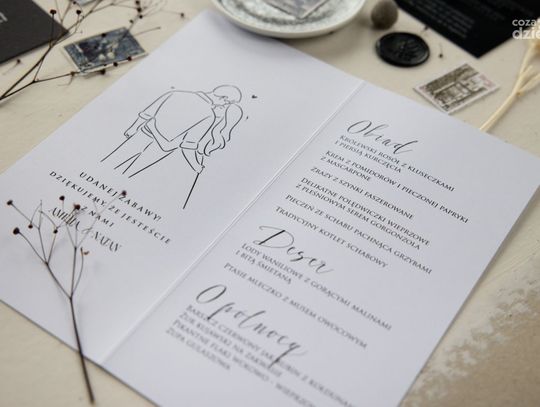 UDANEJ ZABAWY!
DZIĘKUJEMY, ŻE JESTEŚCIE
Z NAMI
& NATAN
Obiad
Królewski rosół z kluseczkami
i piersią kurczęcia
Krem z pomidorów i pieczonej papryki
z mascarpone
Zrazy z szynki faszerowane
Delikatne polędwiczki wieprzowe
z pleśniowym serem gorgonzola
Pieczeń ze schabu pachnąca grzybami
Tradycyjny kotlet schabowy
Deser
Lody waniliowe z gorącymi malinami
i bitą śmietaną
Ptasie mleczko z musem owocowym
O północy
Barszcz czerwony jak rubin z
Żur kujawski na zakwasie
Pikantne flaki wołowo - wieprzowe
Zupa gulaszowa